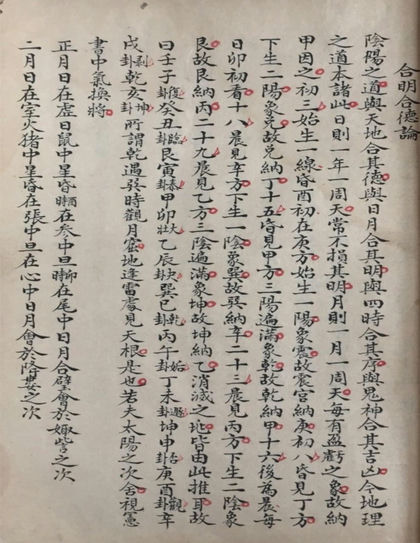 合明合德論
陰陽之道與天地合其德與日月合其明與四時合其序與鬼神合其吉凶今地理
之道本諸此日則一年一周天常不損其明月則一月一周天每有盈虧之象故納
甲因之初三始生一線昏酉初在庚方始生一陽象震故震宮納庚初八昏見丁方
下生二陽象兌故兌納丁十五昏見甲方三陽遍滿象乾故乾納甲十六後為晨每
日卯初看十八晨見辛方下生一陰象巽故巽納辛二十三晨見丙方下生二陰象
艮故艮納丙二十九晨見乙方三陰遍滿象坤故坤納乙消滅之地皆由此推耳故
曰壬子復卦癸丑臨卦艮寅泰卦甲卯大壯乙辰夬卦巽巳乾卦丙午姤卦丁未遯卦坤申否卦庚酉觀卦辛
戌剝卦乾亥坤卦所謂乾遇巽時觀月窟地逢雷處見天根是也若夫太陽之次舍視憲
書中氣換將
正月日在虛日鼠中星昏在參中旦在尾中日月合璧會於娵訾之次
二月日在室火猪中星昏在張中旦在心中日月會於降婁之次